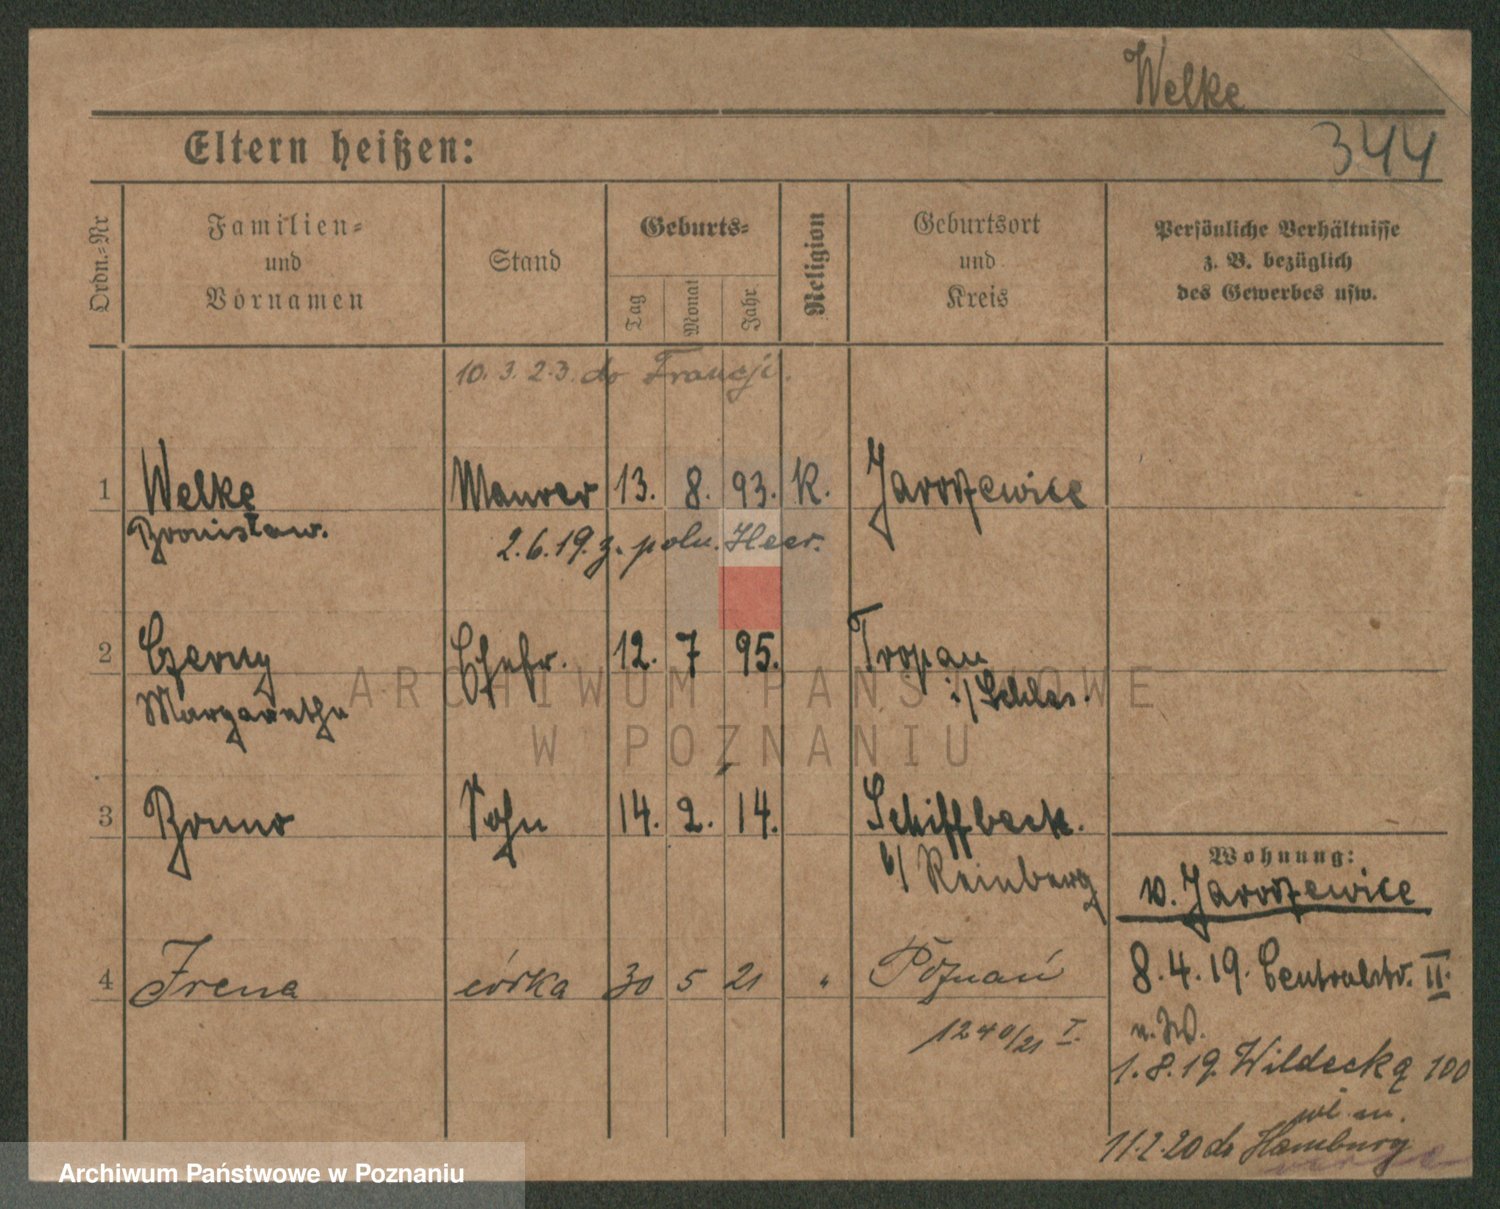 Welke
344
Eltern heißen:
Ordn.=Nr
Familien=
und
Vornamen
Stand
Geburts=
Tag
Monat
Jahr
Religion
Geburtsort
und
Kreis
Persönliche Verhältnisse
z. B. bezüglich
des Gewerbes usw.
10. 3. 23. do Francji.
1 Welke Maurer 13. 8. 93. K. Jaroszewice
Bronisław. 2.6.19. z. poln. Heer.
2 Czerny Ehefr. 12. 7 95. Tropau
Margarethe i/Schles.
ARCHIWUM PAŃSTWOWE
W POZNANIU
3 Bruno Sohn 14. 2. 14. Schiffbeck.
b/ Reinberg
Wohnung:
v. Jaroszewice
4 Irena córka 30 5 21 " Poznań
8.4.19. Centralstr. II.
1240/21 I.
1.8.19. Wildecka 100
11.2.20 do Hamburg
Archiwum Państwowe w Poznaniu